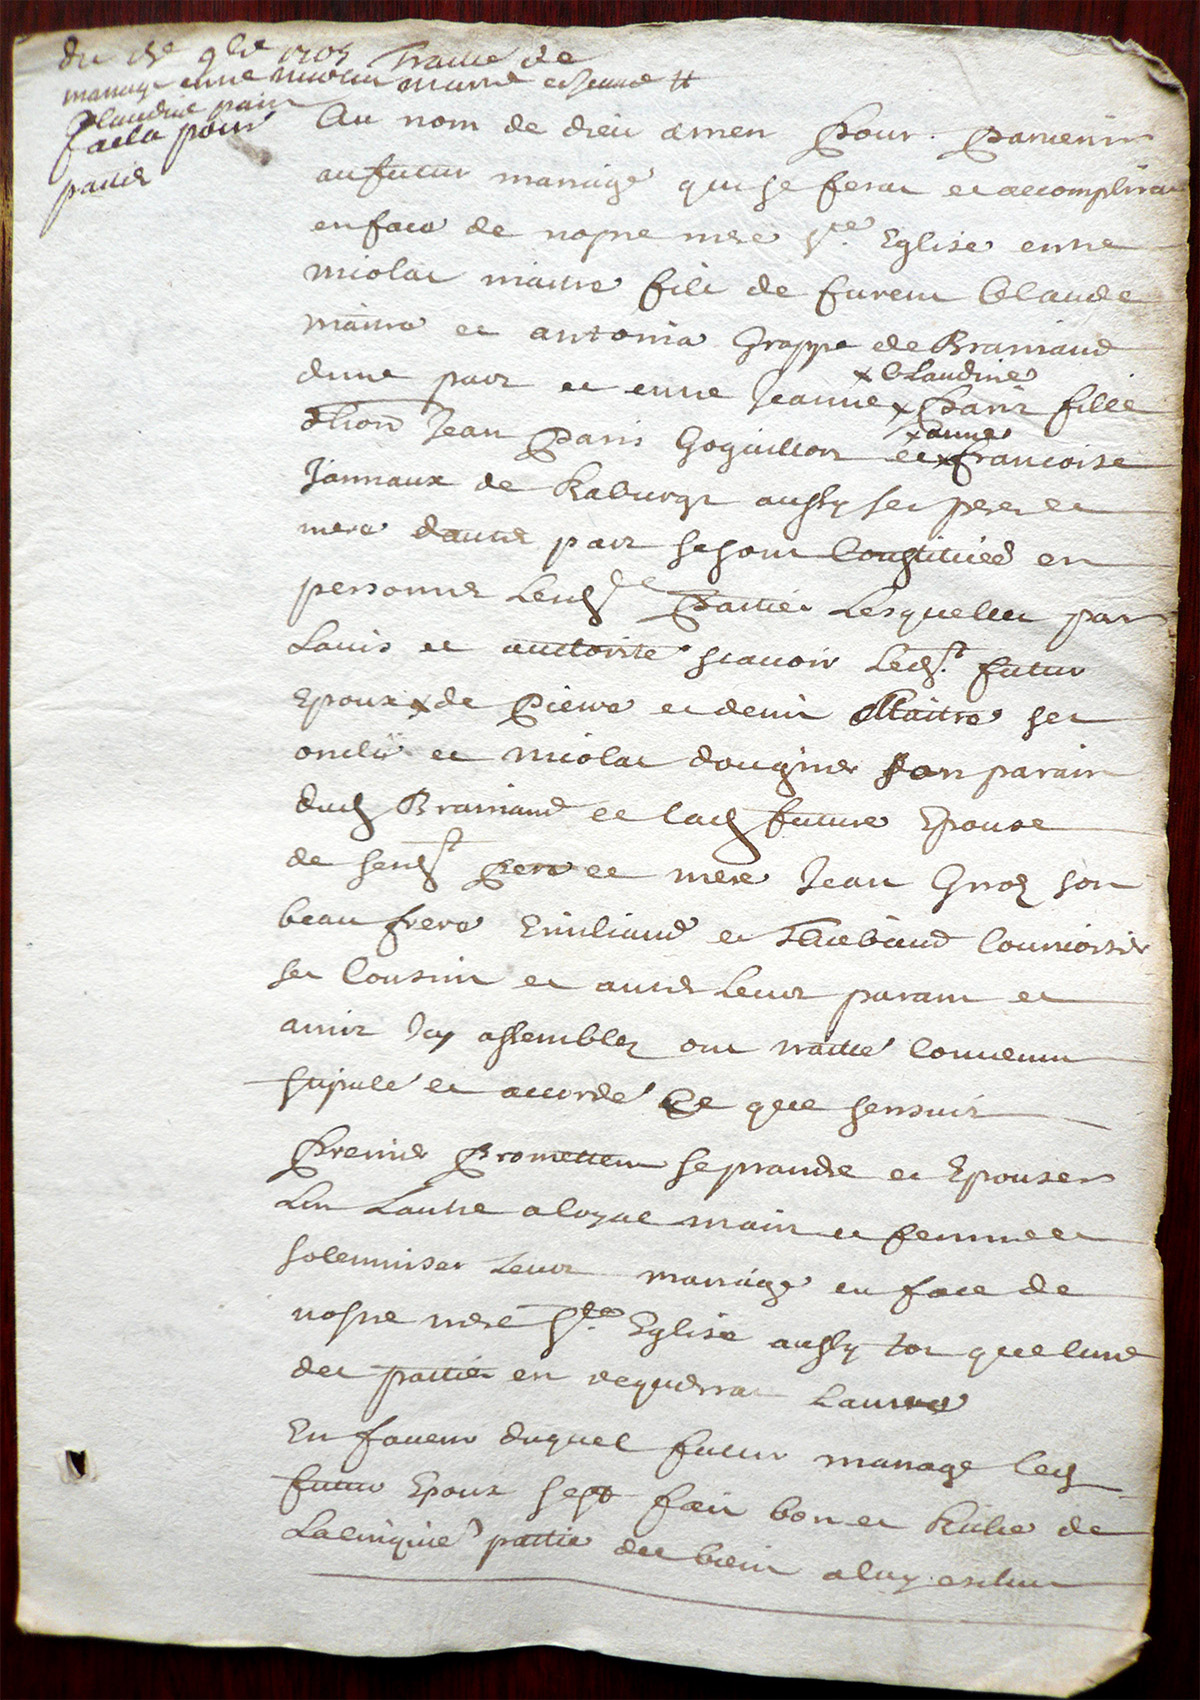 du 15e 9bre 1705 Traitté de
mariage entre nicolas maitre et Jeanne #
Claudine paris
facta pour
parties
Au nom de dieu amen Pour Parvenir
au futur mariage qui se ferat et accomplirat
en face de nostre mere Ste Eglise entre
nicolas maitre fils de furent Claude
maitre et antonia Grappe de Bramaud
dune part et entre Jeanne x Claudine x Paris fille
Jean Paris Goguillon et x anne x francoise
Jannaux de Raburgt aussy ses pere et
mere dautre part se sont Constitués en
personnes Lesd Parties Lesquelles par
Lavis et auctorité scavoir Ledt futur
Epoux x de Pierre et denis Maitre ses
oncles et nicolas dougner son parain
dud Bramaud et lad future Epouse
de sesd pere et mere Jean Groz son
beau frere Emiliand et Thiebaud Cournoisier
ses Cousins et autres Leurs parans et
amis Icy assemblez ont traitté Convenu
stipulé et accordé Ce que sensuit
Premier Promettent se prandre et Epouser
Lun Lautre a loyal marir et femme et
solemniser Leurs mariage en face de
nostre mere Ste Eglise aussy tot que lune
des parties en requerrat Lautre
En faveur duquel futur mariage led
futur Epoux sest fait bon et Riche de
La cinquie partie des biens a luy eschus